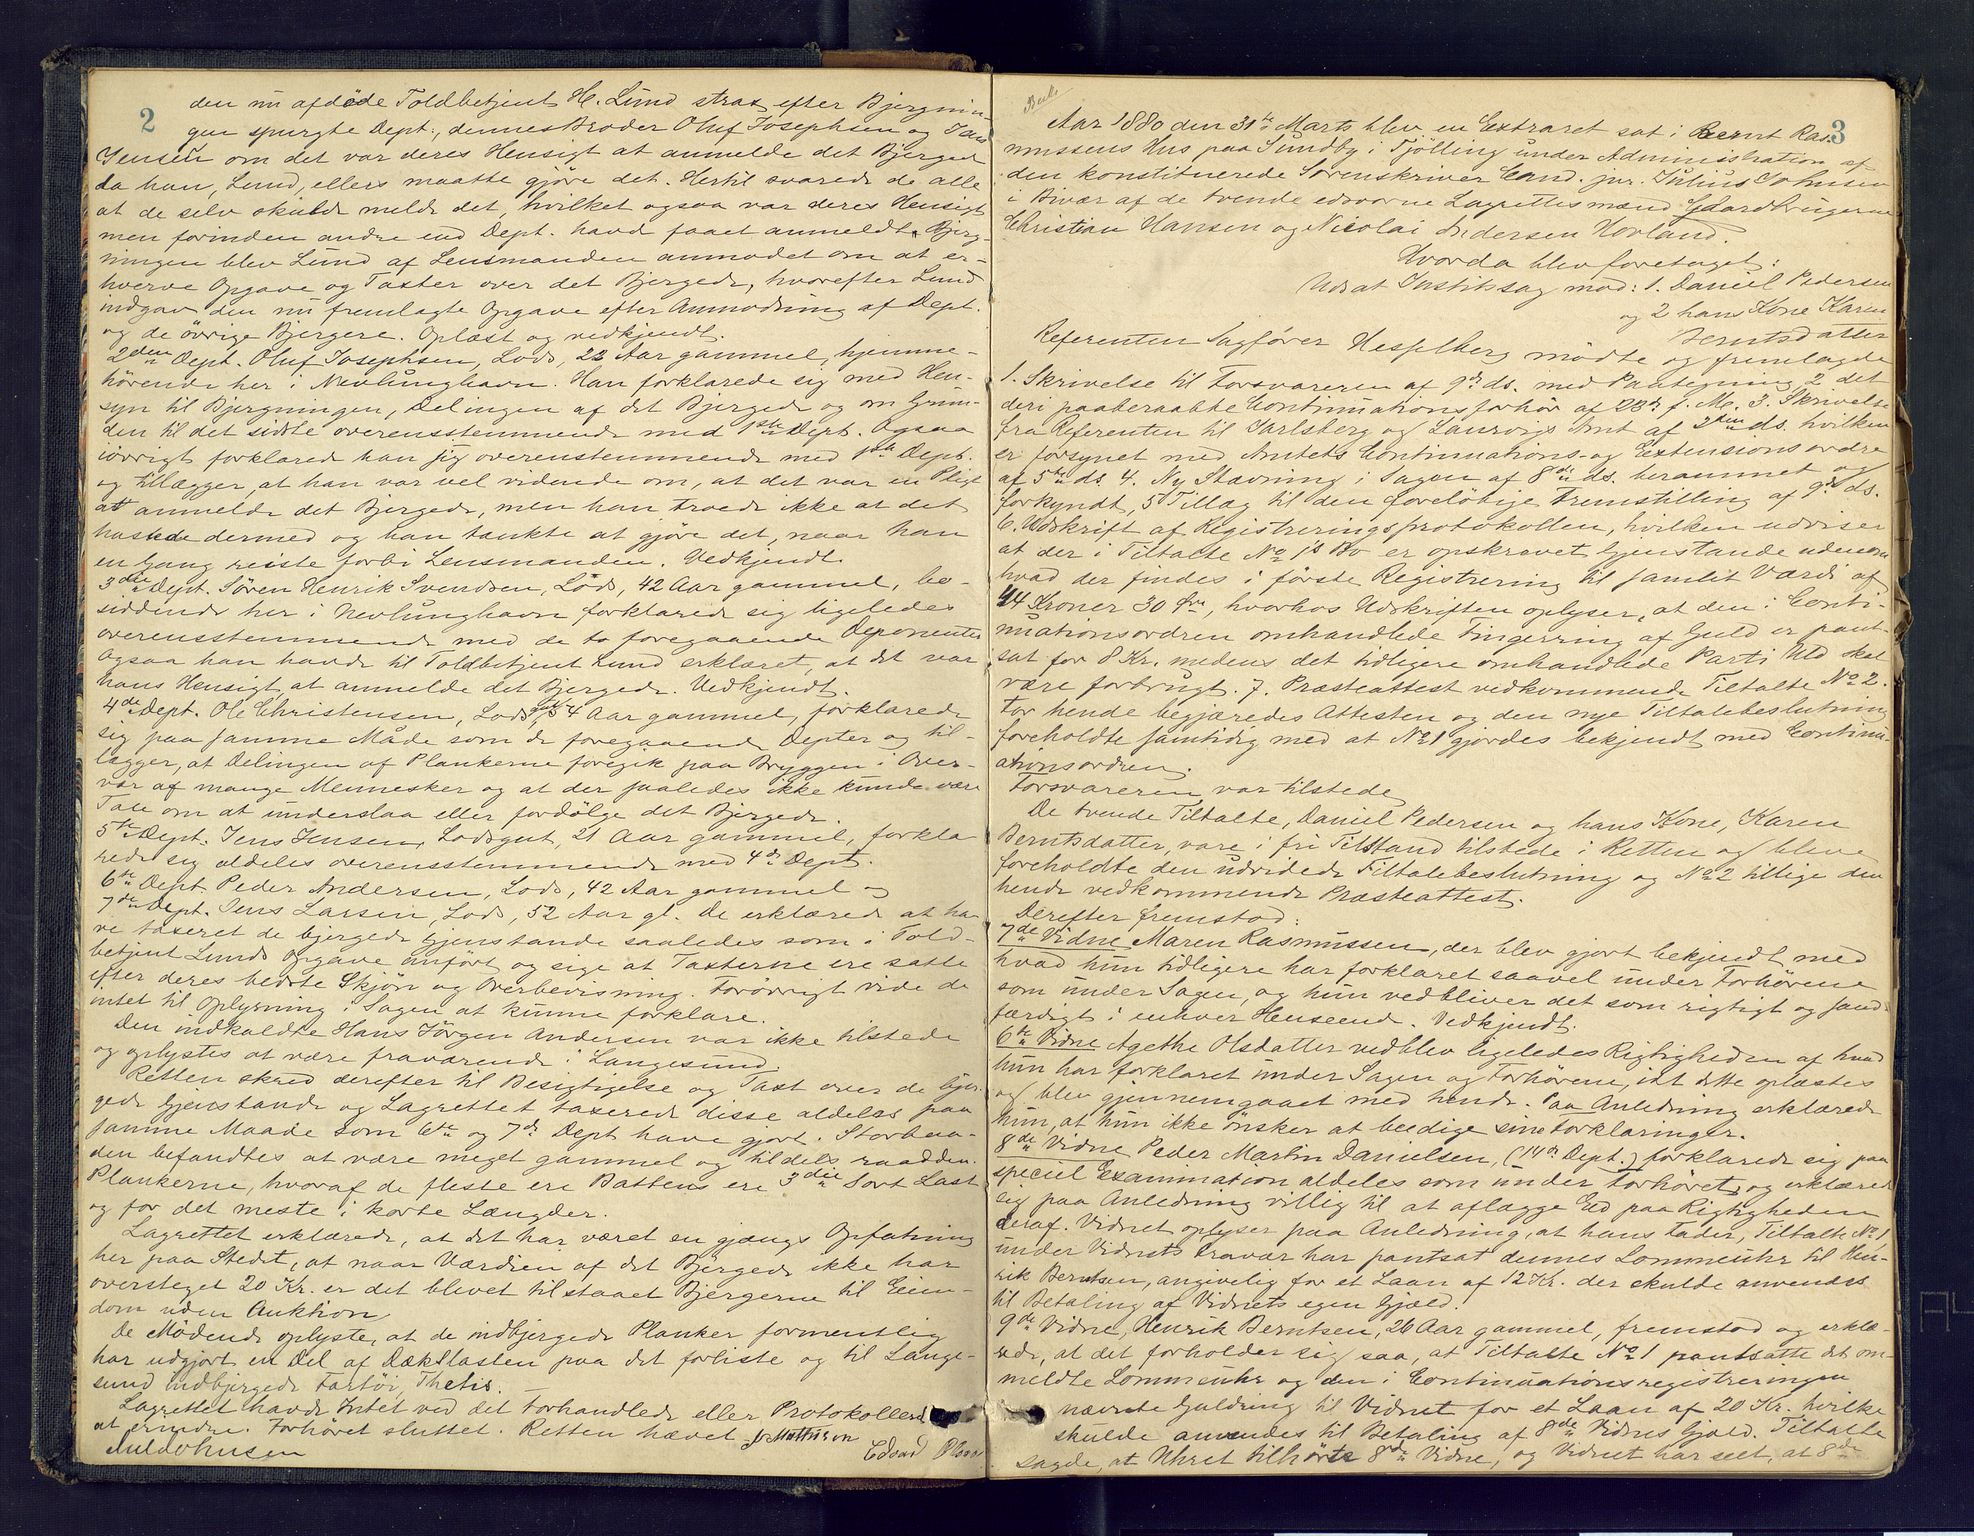 2
den nu afdøde Toldbetjent H. Lund strax efter Bjergnin
gen spurgte Dept., dennes Broder Oluf Josephsen og Jens
Jensen om det var deres Hensigt at anmelde det Bjergede
da han, Lund, ellers maatte gjöre det. Hertil svarede de alle
at de selv skulde melde det, hvilket ogsaa var deres Hensigt
men forinden andre end Dept. havde faaet anmeldt Bjerg-
ningen blev Lund af Lensmanden anmodet om at er-
hverve Opgave og Taxter over det Bjergede, hvorefter Lund
indgav den nu fremlagte Opgave efter Anmodning af Dept.
og de övrige Bjergere. Oplæst og vedkjendt.
2den Dept. Oluf Josephsen, Lods, 22 Aar gammel, hjemme-
hörende her i Nevlunghavn. Han forklarede sig med Hen-
syn til Bjergningen, Delingen af det Bjergede og om Grun-
den til det sidste overensstemmende med 1ste Dept. Ogsaa
iövrigt forklarede han sig overensstemmende med 1ste Dept.
og tillægger, at han var vel vidende om, at det var en Pligt
at anmelde det Bjergede, men han troede ikke at det
hastede dermed og han tænkte at gjöre det, naar han
en Gang reiste forbi Lensmanden. Vedkjendt.
3die Dept. Sören Henrik Svendsen, Lods, 42 Aar gammel, bo-
siddende her i Nevlunghavn forklarede sig ligeledes
overensstemmende med de to foregaaende Deponenter
Ogsaa han havde til Toldbetjent Lund erklæret, at det var
hans Hensigt at anmelde det Bjergede. Vedkjendt.
4de Dept. Ole Christensen, Lodsgut, 54 Aar gammel, forklarede
sig paa samme Måde som de foregaaende Depter og til-
lægger, at Delingen af Plankerne foregik paa Bryggen i Over-
vær af mange Mennesker og at der saaledes ikke kunde være
Tale om at underslaa eller fordölge det Bjergede.
5te Dept. Jens Jensen, Lodsgut, 21 Aar gammel, forkla
rede sig aldeles overensstemmende med 4de Dept.
6te Dept. Peder Andersen, Lods, 42 Aar gammel og
7de Dept. Jens Larsen, Lods, 52 Aar gl. De erklærede at ha
ve taxeret de bjergede Gjenstande saaledes som i Told-
betjent Lunds Opgave anfört og sige at Taxterne ere satte
efter deres bedste Skjön og Overbevisning. Forövrigt vide de
intet til Oplysning i Sagen at kunne forklare.
Den indkaldte Hans Jörgen Andersen var ikke tilstede
og oplystes at være fraværende i Langesund.
Retten skred derefter til Besigtigelse og Taxt over de bjer
gede Gjenstande og Lagrettet taxerede disse aldeles paa
samme Maade som 6te og 7de Dept have gjort. Storbaa-
den befandtes at være meget gammel og tildels raadden.
Plankerne, hvoraf de fleste ere Battens ere 3die Sort Last
og for det meste i korte Længder.
Lagrettet erklærede, at det har været en gjængs Opfatning
her paa Stedet, at naar Værdien af det Bjergede ikke har
oversteget 20 Kr. er det blevet tilstaaet Bjergerne til Eien-
dom uden Auktion.
De Mödende oplyste, at de indbjergede Planker formentlig
har udgjort en Del af Dækslasten paa det forliste og til Lange-
sund indbjergede Fartöi, Thetis.
Lagrettet havde Intet ved det Forhandlede eller Protokollen
at erindre. Forhöret sluttet. Retten hævet
Jul Johnsen
3
Aar 1880 den 31te Marts blev en Extraret sat i Bernt Ras-
mussens Hus paa Sundby i Tjölling under Administration af
den konstituerede Sorenskriver Cand. jur. Julius Johnsen
i Bivær af de tvende edsvorne Lagrettesmænd Gaardbrugerne
Christian Hansen og Nicolai Andersen Hovland.
Hvorda blev foretaget:
Udsat Justitssag mod: 1. Daniel Pedersen
og 2 hans Kone Karen
Berntsdatter
Referenten Sagförer Hesselberg mödte og fremlagde
1. Skrivelse til Forsvareren af 9de ds. med Paategning 2 det
deri paaberaabte Continuationsforhör af 28de f. M. 3. Skrivelse
fra Referenten til Jarlsberg og Laurvigs Amt af 2den ds. hvilken
er forsynet med Amtets Continuations- og Extensionsordre
af 5te ds. 4. Ny Stævning i Sagen af 8de ds. berammet og
forkyndt, 5 Tillæg til den foreløbige Fremstilling af 9de ds.
6. Udskrift af Registreringsprotokollen, hvilken udviser
at der i Tiltalte No 1's Bo er opskrevet Gjenstande udenom
hvad der findes i förste Registrering til samlet Værdi af
44 Kroner 30 Öre, hvorhos Udskriften oplyser, at den i Conti-
nuationsordren omhandlede Fingerring af Guld er pant-
sat for 8 Kr. medens det tidligere omhandlede Parti Uld skal
være forbrugt. 7. Præsteattest vedkommende Tiltalte No 2.
For hende begjæredes Attesten og den nye Tiltalebeslutning
foreholdte samtidig med at No 1 gjordes bekjendt med Continu-
ationsordren.
Forsvareren var tilstede
De tvende Tiltalte, Daniel Pedersen og hans Kone, Karen
Berntsdatter, vare i fri Tilstand tilstede i Retten og bleve
foreholdte den udvidede Tiltalebeslutning og No 2 tillige den
hende vedkommende Præsteattest.
Derefter fremstod:
7de Vidne Maren Rasmussen, der blev gjort bekjendt med
hvad hun tidligere har forklaret saavel under Forhörene
som under Sagen, og hun vedbliver det som rigtigt og sand-
færdigt i enhver Henseende. Vedkjendt.
6te Vidne Agethe Olsdatter vedblev ligeledes Rigtigheden af hvad
hun har forklaret under Sagen og Forhörene, idet dette oplæstes
og blev gjennemgaaet med hende. Paa Anledning erklærede
hun, at hun ikke önsker at beedige sine Forklaringer.
8de Vidne Peder Martin Danielsen, (14de Dept.) forklarede sig paa
speciel Examination aldeles som under Forhöret og erklærede
sig paa Anledning villig til at aflægge Ed paa Rigtigheden
deraf. Vidnet oplyser paa Anledning, at hans Fader, Tiltalte No 1
under Vidnets Fravær har pantsat dennes Lommeuhr til Hen-
rik Berntsen, angivelig for et Laan af 12 Kr. der skulde anvendes
til Betaling af Vidnets egen Gjæld.
9de Vidne, Henrik Berntsen, 26 Aar gammel, fremstod og erklæ-
rede, at det forholder sig saa, at Tiltalte No 1 pantsatte det om-
meldte Lommeuhr og den i Continuationsregistreringen
nævnte Guldring til Vidnet for et Laan af 20 Kr. hvilke
skulde anvendes til Betaling af 8de Vidnes Gjæld. Tiltalte
sagde, at Uhret tilhörte 8de Vidne, og Vidnet har seet, at 8de